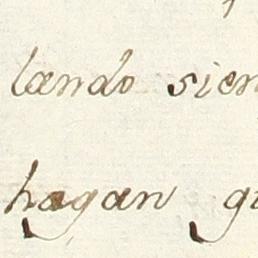 lando sien
hagan gu